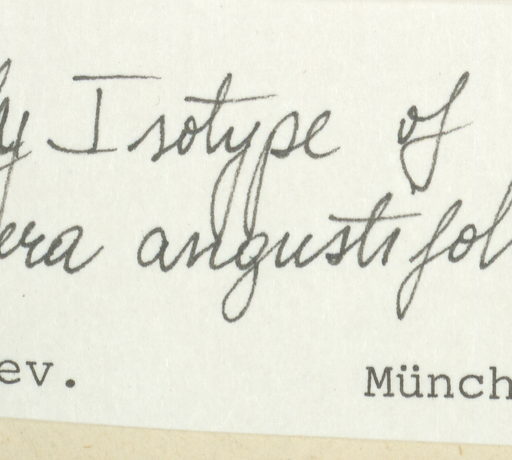 y Isotype of
era angustifol
ev. Münch